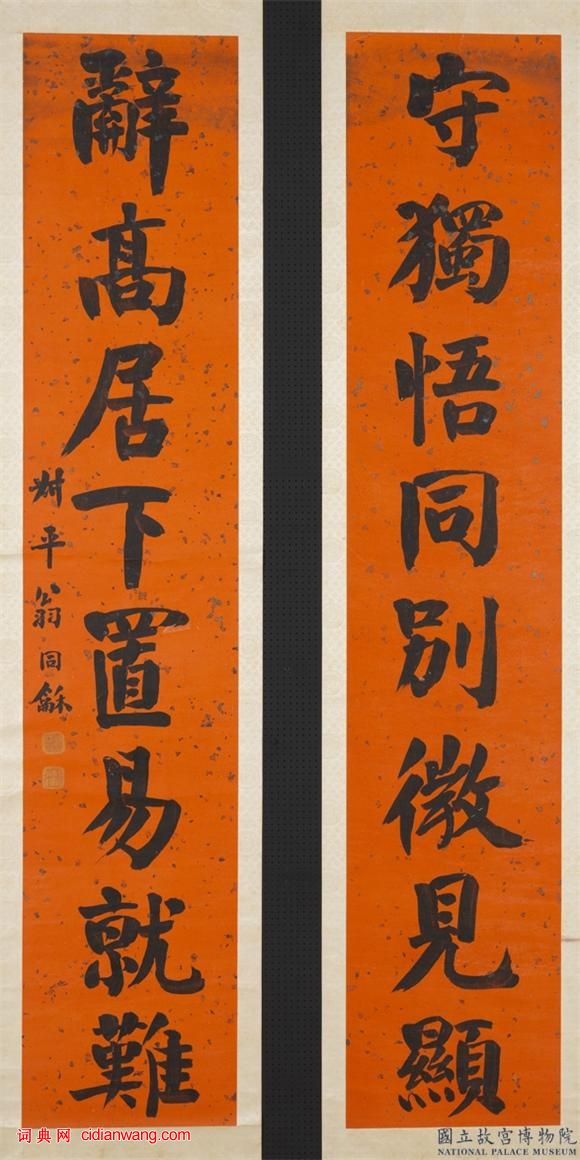 守獨悟同別微見顯
辭高居下置易就難
叔平翁同龢
國立故宮博物院
NATIONAL PALACE MUSEUM
词典网 cidianwang.com